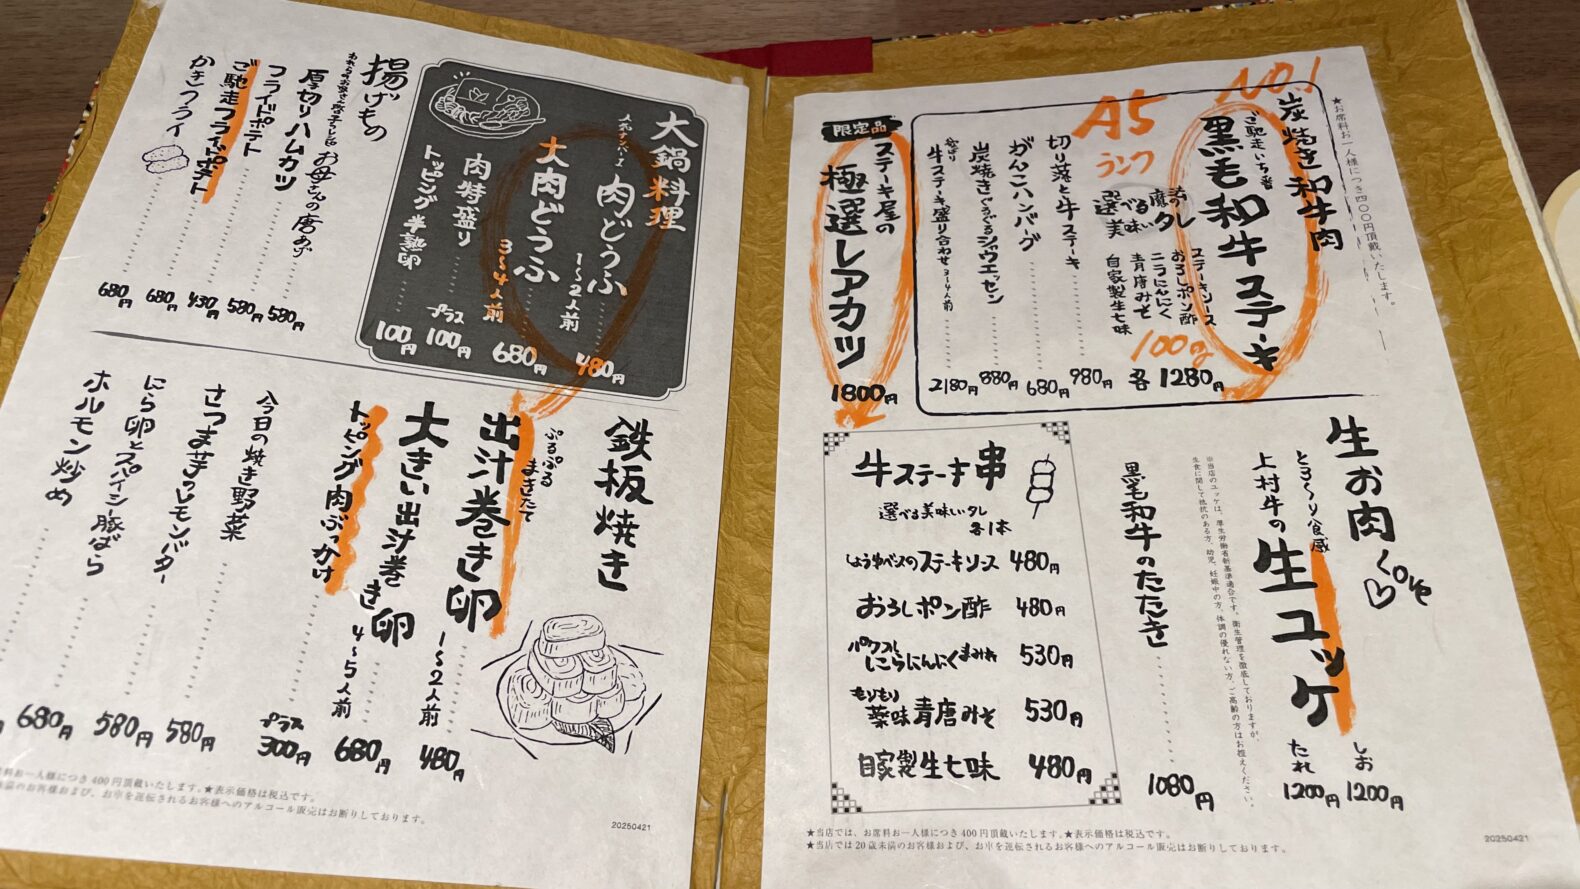 ★お席料お一人様につき四〇〇円頂戴いたします。
炭焼き和牛肉
NO.1
ご馳走いち番
黒毛和牛ステーキ
A5
ランプ
選べる
美味いタレ
ステーキソース
おろしポン酢
ニラにんにく
青唐みそ
自家製生七味
100g
各 1280円
切り落とし牛ステーキ 980円
がんこハンバーグ 680円
炭焼きぐるぐるジャウエッセン 880円
牛ステーキ盛り合わせ 3〜4人前 2180円
限定品
ステーキ屋の
極選レアカツ
1800円
生お肉
とろ〜り食感
上村牛の
生ユッケ
しお 1200円
たれ 1200円
※当店のユッケは、厚生労働省新基準適合です。衛生管理を徹底しておりますが、
生食に関して抵抗のある方、幼児、妊娠中の方、体調の優れない方、ご高齢の方はお控えください。
黒毛和牛のたたき 1080円
牛ステーキ串
選べる美味いタレ
各1本
しょうゆベースのステーキソース 480円
おろしポン酢 480円
にらにんにくまみれ 530円
もりもり
薬味青唐みそ 530円
自家製生七味 480円
★当店では、お席料お一人様につき400円頂戴いたします。★表示価格は税込です。
★当店では20歳未満のお客様および、お車を運転されるお客様へのアルコール販売はお断りしております。
20250421
大鍋料理
人気ナンバーワン
肉どうふ
1〜2人前 480円
大肉どうふ
3〜4人前 680円
肉特盛り プラス 100円
トッピング 半熟卵 100円
揚げもの
お母さんの唐あげ 580円
厚切りハムカツ 580円
フライドポテト 430円
ご馳走フライドポテト 680円
かきフライ 680円
鉄板焼き
ぷるぷる
まきたて
出汁巻き卵
1〜2人前 480円
大きい出汁巻き卵
4〜5人前 680円
トッピング肉ぶっかけ プラス 300円
今日の焼き野菜
さつま芋のレモンバター 580円
にら卵とスパイシー豚ばら 580円
ホルモン炒め 680円
席料お一人様につき400円頂戴いたします。★表示価格は税込です。
満のお客様および、お車を運転されるお客様へのアルコール販売はお断りしております。
20250421